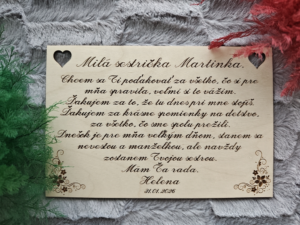 Milá sestrička Martinka,
Chcem sa Ti poďakovať za všetko, čo si pre
mňa spravila, veľmi si to vážim.
Ďakujem za to, že tu dnes pri mne stojíš.
Ďakujem za krásne spomienky na detstvo,
za všetko, čo sme spolu prežili.
Dnešok je pre mňa veľkým dňom, stanem sa
nevestou a manželkou, ale navždy
zostanem Tvojou sestrou.
Mám Ťa rada.
Helena
31.01.2026